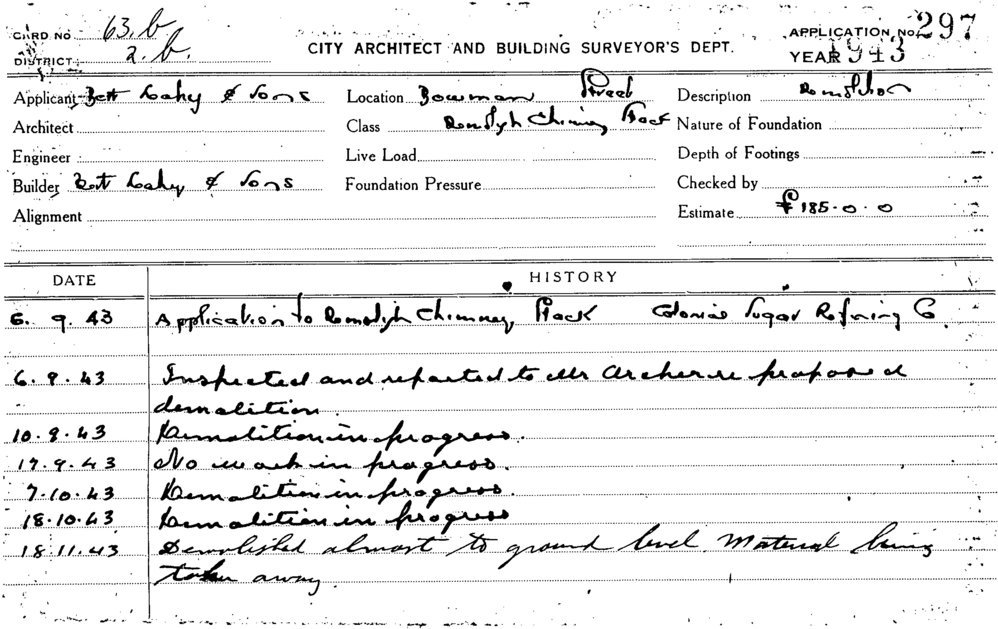 CARD NO 63.b
APPLICATION No. 297
DISTRICT 2.b.
CITY ARCHITECT AND BUILDING SURVEYOR'S DEPT.
YEAR 1943
Applicant Bert Lahy & Sons Location Bowman Street Description Demolition
Architect Class Demolish Chimney Stack Nature of Foundation
Engineer Live Load Depth of Footings
Builder Bert Lahy & Sons Foundation Pressure Checked by
Alignment Estimate £185.0.0
DATE HISTORY
6. 9. 43 Application to Demolish Chimney Stack Colonial Sugar Refining Co
6. 9. 43 Inspected and reported to Mr Archer re proposed
demolition.
10. 9. 43 Demolition in progress.
17. 9. 43 No work in progress.
7. 10. 43 Demolition in progress.
18. 10. 43 Demolition in progress
18. 11. 43 Demolished almost to ground level. Material being
taken away.